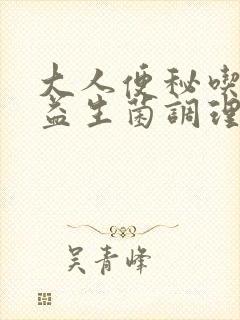 大人便秘喫
益生菌調理
吴青峰